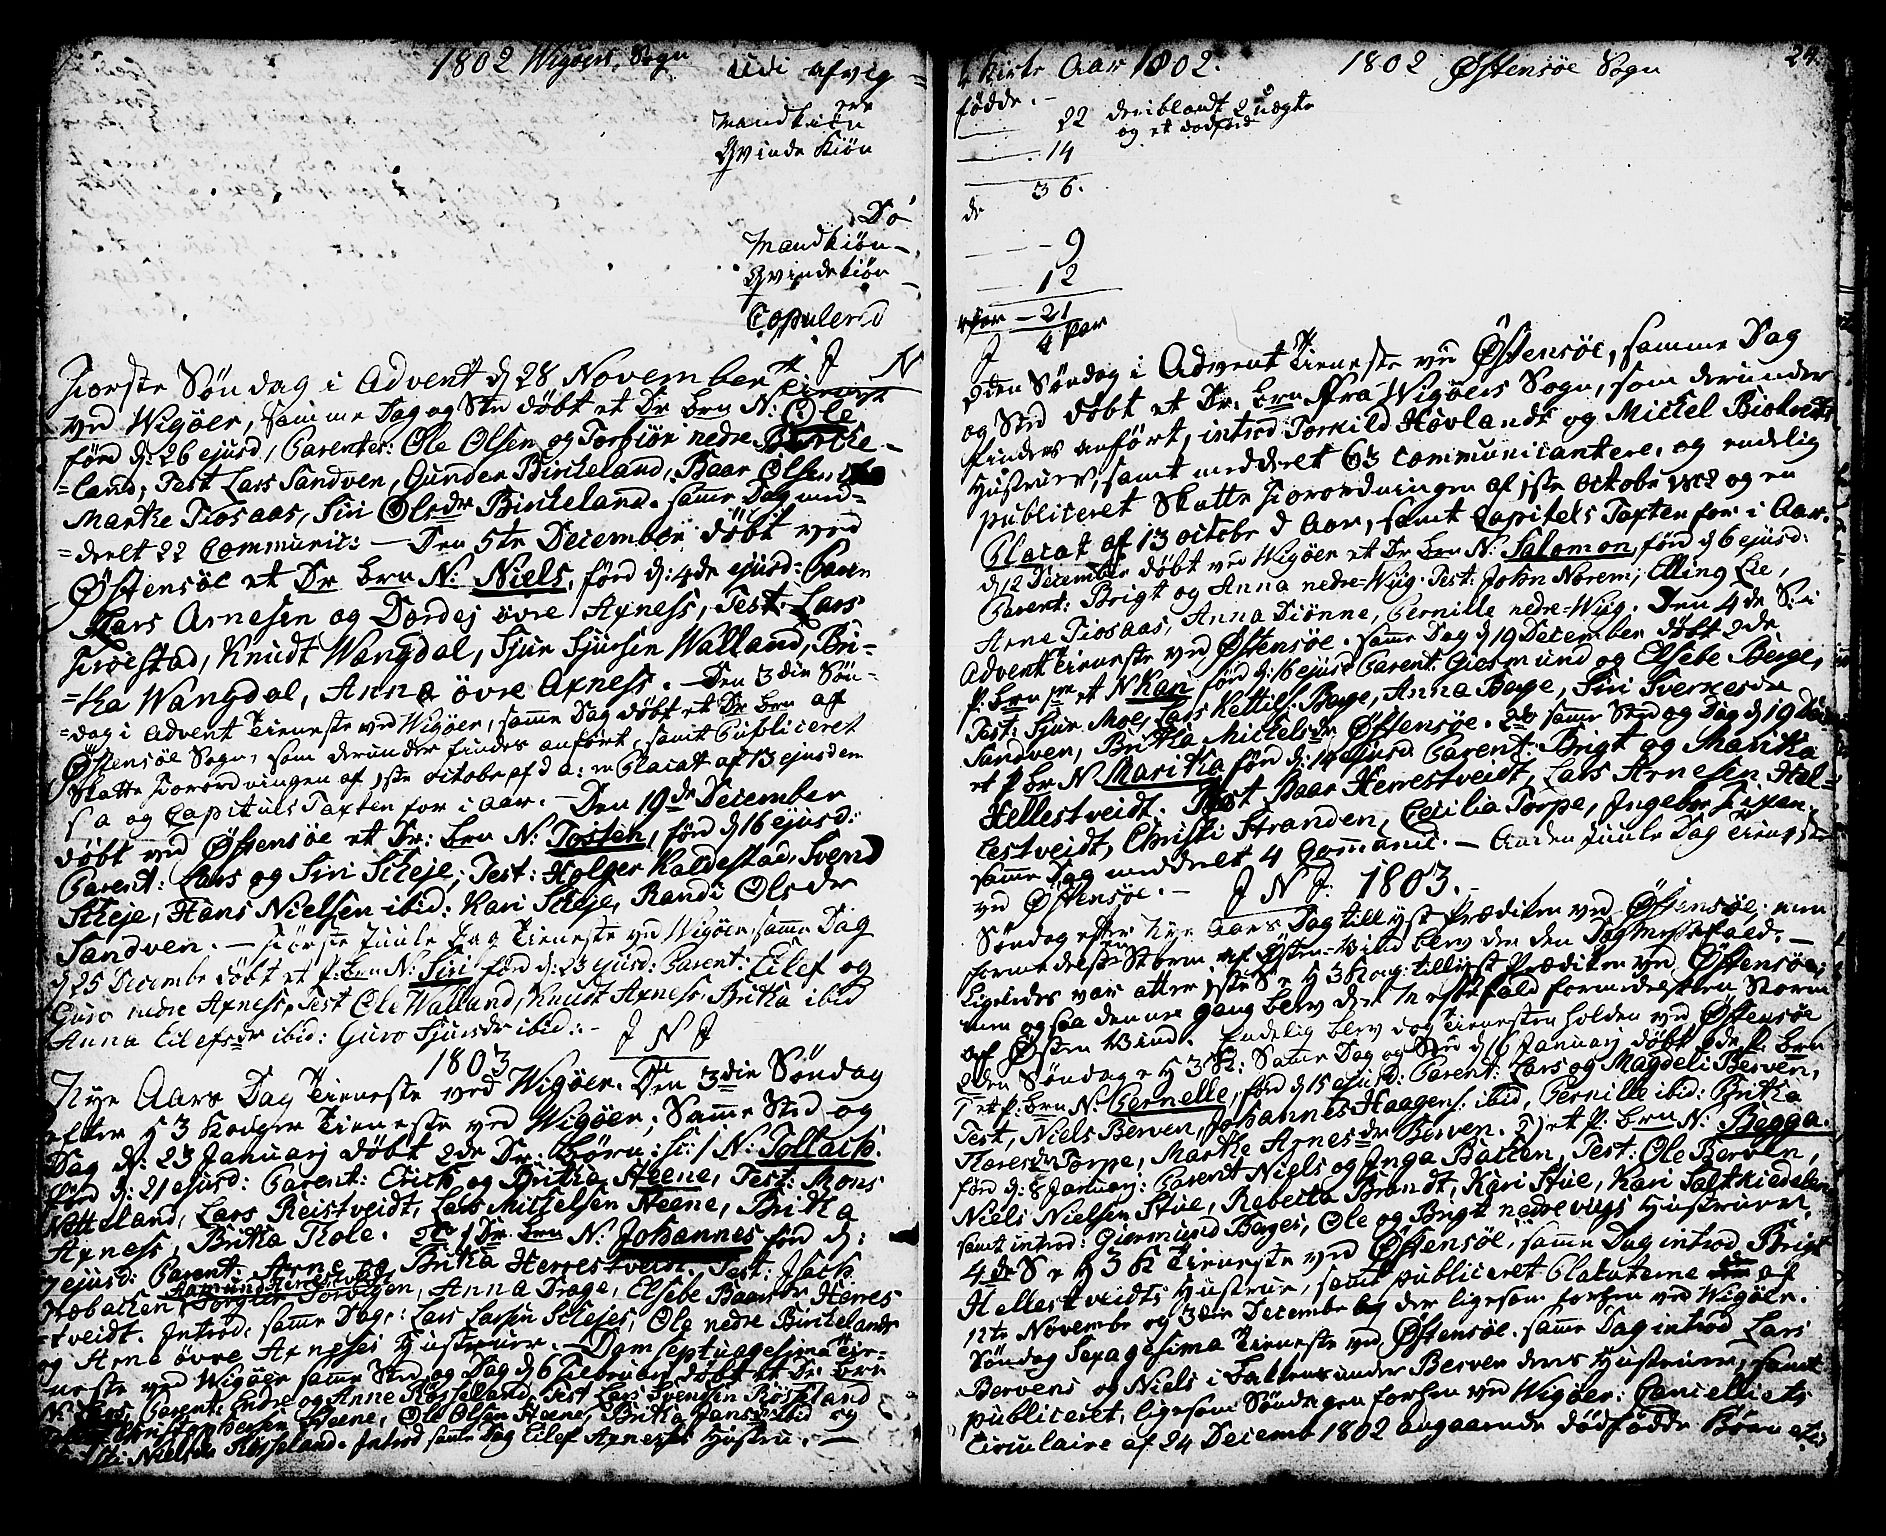 1802 Wigöers Sogn
udi afvig=
Mandkiøn
Qvinde Kiøn
Dö
Mandkiön
Qvindekiön
Copulerd
Förste Söndag i Advent d 28 November
J N
ved Wigöer, samme Dag og Sted döbt et Dr brn N: Ole
förd d: 26 ejusd, Parentes: Ole Olsen og Torbiör nedre Birche-
=land; Test Lars Sandven, Gunder Bircheland, Baar Olsen
Martha Tiosaas, Siri Olsdr Bircheland. samme Dag med-
=deelt 22 Communic: — Den 5te December döbt ved
Östensöe et Dr brn N: Niels, förd d: 4de ejusd: Paren
Lars Arnesen og Dordej övre Axness, Test: Lars
Froestad, Knudt Wangdal, Sjur Sjursen Walland, Bri-
=tha Wangdal, Anna övre Axness. — Den 3die Sön-
=dag i Advent Tieneste ved Wigöer, samme Dag döbt et Dr brn af
Östensöe Sogn, som derunder findes anfört, samt Publiceret
Skatte Forordningen af 1ste Octobr af d a: en Placat af 13 ejusdem
s a og Capituls Taxten for i Aar. — Den 19de December
döbt ved Östensöe et Dr: brn N: Tosten, förd d 16 ejusd:
Parent: Lars og Siri Skeje, Test: Holger Kaldestad, Svend
Skeje, Hans Nielsen ibid: Kari Skeje, Randi Olsdr
Sandven. — Förste Juule Dag Tieneste ved Wigöer samme Dag
d 25 Decembr döbt et P: brn N: Siri förd d: 23 ejusd: Parent: Eilef og
Guro nedre Axness, Test Ole Walland, Knudt Axness, Britha ibid
Anna Eilefsdr ibid: Guro Sjursdr ibid: -
J N J
1803
Nye Aars Dag Tieneste ved Wigöer. Den 3die Söndag
efter H 3 Konger Tieneste ved Wigöer; Samme Sted og
Dag d: 23 Januarj döbt 2de Dr: Börn: sc: 1 N: Tollach.
förd d: 21 ejusd: Parent: Erich og Britha Steene, Test: Mons
Netteland, Lars Reistveidt, Lars Mickelsen Steene, Britha
Axness, Britha Flole. 2do 1 Dr brn N: Johannes förd d:
7 ejusd: Parent: Arne og Britha Herrestveidt. Test: Isach
Aamund Herrestveidt
Anna Drage, Elsebe Baarsdr Herres
=tveidt. Introd: samme Dag: Lars Larsen Skejes, Ole nedre Birchelands
og Arne övre Axness Hustruer. — Dom septuagesima Tie-
=neste ved Wigöer samme Sted og Dag d 6 Februarj döbt et Dr brn
Parent: Endre og Anne Rösseland, Test Lars Svendsen Rösseland
Christophersen Steene, Ole Olsen Steene, Britha Jansdr ibid og
Nielsdr Rösseland. Introd samme Dag Eilef Axnesses Hustru. —
Kirke Aar 1802.
1802 Östensöe Sogn
24.
födde. -
22 deriblandt 2 uægte
og et dödföd
14
36.
de
9
12
21
4 Par
J
2den Söndag i Advent Tieneste ved Östensöe, samme Dag
og Sted döbt et Dr. brn fra Wigöers Sogn, som derunder
findes anfört, introd Torkild Hövlandt og Mickel
Hustruer, samt meddeelt 63 Communicantere, og endelig
publiceret Skatte Forordningen af 1ste Octobr 1802 og en
Placat af 13 Octobr d Aar, samt Capitels Taxten for i Aar.
d 12 December döbt ved Wigöer et Dr brn N: Salomon, förd d 6 ejusd:
Parent: Brigt og Anna nedre=Wiig. Test: John Norem, Elling Lie,
Arne Tiosaas, Anna Diönne, Pernille nedre=Wiig. Den 4de S: i
Advent Tieneste ved Östensöe. samme Dag d 19 December döbt 2de
P: brn 1 et N: Kari förd d: 16 ejusd Parent: Giermund og Elsebe Berge,
Test: Sjur Moe, Lars Kettils: Berge, Anna Berge, Siri Sverkesdr
Sandven, Britha Mickelsdr Östensöe. 2do samme Sted og Dag d 19 Decb
et P br N Maritha förd d: 14 ejusd Parent: Brigt og Maritha
Hellestveidt. Test Baar Herrestveidt, Lars Arnesen Hel=
lestveidt, Christi Stranden, Cecilia Torpe, Ingebor
samme Dag meddeelt 4 Communic. — Anden Juule Dag Tieneste
ved Östensöe. —
J N J. 1803.
Söndag efter Nye Aars Dag tillyst Prædiken ved Östensöe, men
formedelst Storm af Östen=Vind blev der den Dag Messefald. —
Ligeledes var atter 1ste S e H 3 Kog: tillyst Prædiken ved Östensöe,
men ogsaa denne gang blev der Messefald formedelst en Storm
af Östen Vind. Endelig blev dog Tienesten holden ved Östensöe
2den Söndag e H 3 K: Samme Dag og Sted d 16 Januarj döbt 2de P: brn
1 et P: brn N: Pernelle, förd d 15 ejusd: Parent: Lars og Magdeli Berven,
Test, Niels Berven, Johannes Haagens: ibid, Pernille ibid: Britha
Torpe, Martha Arnesdr Berven. 2) et P: brn N: Begga.
förd d: 8 Januarj: Parent Niels og Inga Batten, Test: Ole Berven,
Niels Nielsen Stue, Rebecka Brandt, Kari Stue, Kari Saltkiedelen
samt introd: Giermund Berges, Ole og Brigt nedre viigs Hustruer.
4de S e H 3 K Tieneste ved Östensöe, samme Dag introd Brigt
Hellestveidts Hustrue, samt publiceret Placaterne af
12te Novembr og 3die Decembr der ligesom forhen ved Wigöer.
Söndag Sexagesima Tieneste ved Östensöe. samme Dag introd Lars
Bervens og Niels i Batten under Berven deres Hustruer, samt
publiceret, ligesom Söndagen forhen ved Wigöer: Cancelliets
Circulaire af 24 Decemb 1802 angaaende dödfödde Börn etc: